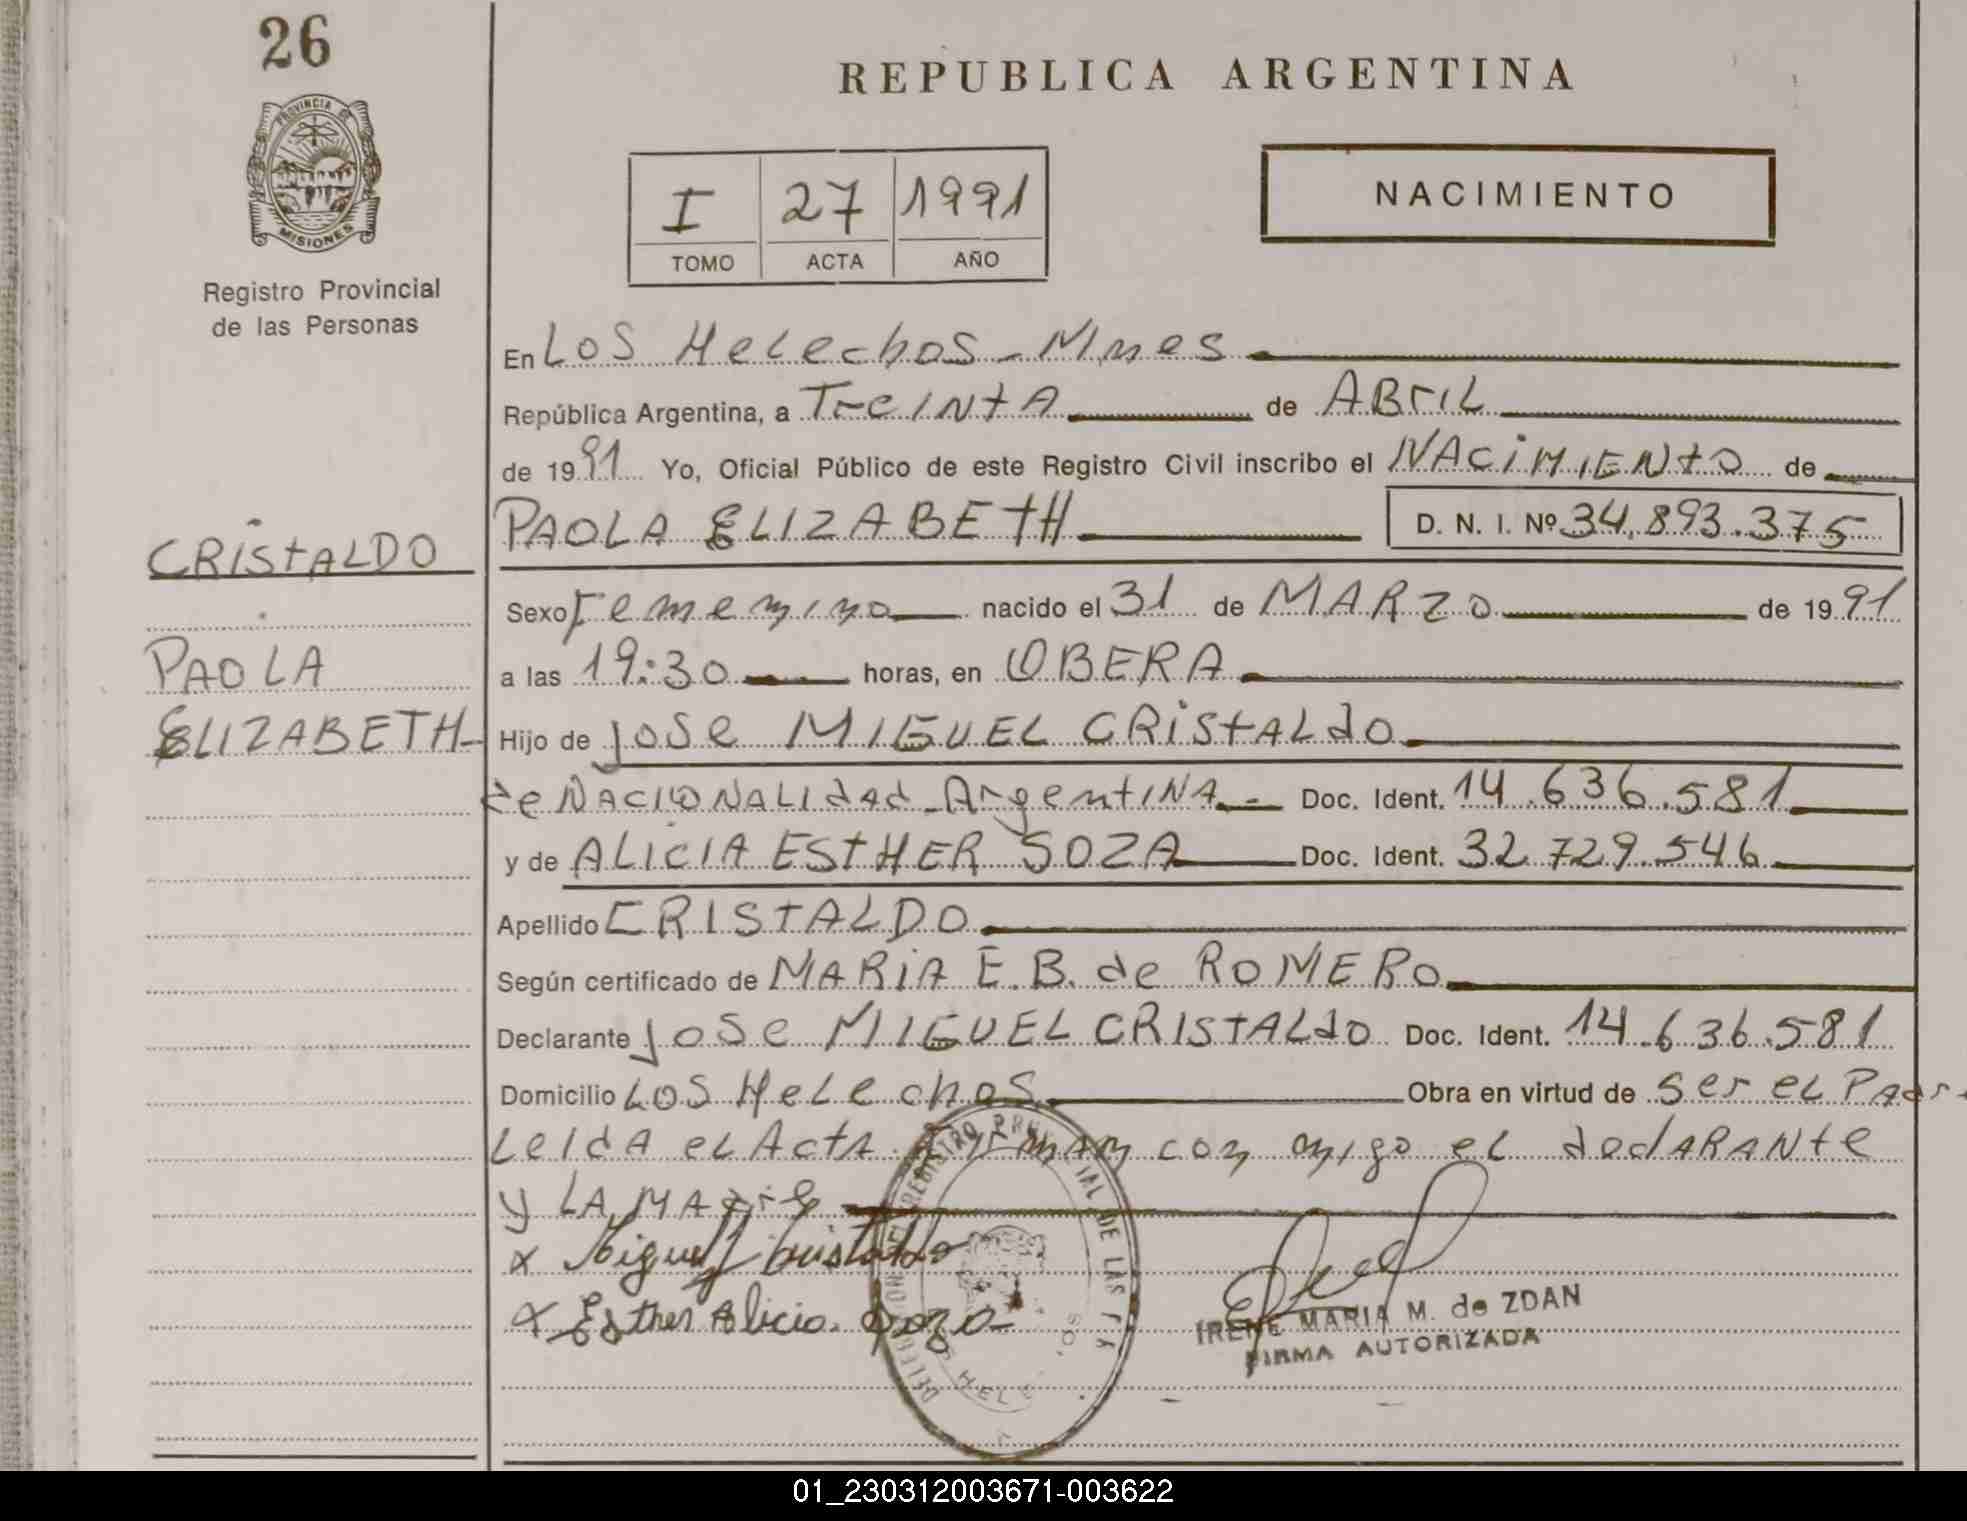 26
PROVINCIA DE
MISIONES
Registro Provincial
de las Personas
CRISTALDO
PAOLA
ELIZABETH
REPUBLICA ARGENTINA
I 27 1991
TOMO ACTA AÑO
NACIMIENTO
En Los Helechos - Mnes
República Argentina, a TreINtA de ABrIL
de 1991 Yo, Oficial Público de este Registro Civil inscribo el NACiMIENtO de
PAOLA ELIZABEtH D. N. I. Nº 34.893.375
Sexo Femenino nacido el 31 de MARZO de 1991
a las 19:30 horas, en OBERA
Hijo de Jose MIGUEL CRiStALdo
de NACIONALIdAd Argentina Doc. Ident. 14.636.581
y de ALICIA EStHER SOZA Doc. Ident. 32 729.546
Apellido CRISTALDO
Según certificado de MARIA E.B. de ROMERO
Declarante Jose MIGUEL CRISTALdO Doc. Ident. 14.636.581
Domicilio Los Helechos Obra en virtud de ser el PAdr
Leida el ActA Firman con migo el declARANte
y LA MAdre
x Miguel Cristaldo
x Esther Alicia Soza
IRENE MARIA M. de ZDAN
FIRMA AUTORIZADA
01_230312003671-003622